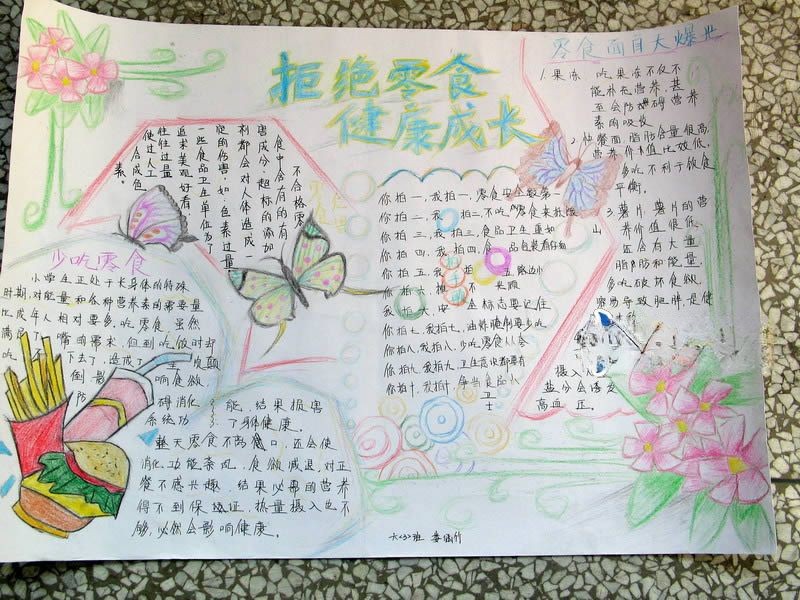 拒绝零食
健康成长
零食面目大爆光
1.果冻 吃果冻不仅不
能补充营养,甚
至会防碍营养
素的吸收
2.快餐面 脂肪含量很高
营养价值比较低,
多吃不利于饮食
平衡。
3.薯片,薯片的营
养价值很低,
还含有大量
脂肪和能量,
多吃破坏食欲,
容易导致肥胖,是健
摄入
盐分会诱发
高血压。
不合格零
食中含有的有
害成分、超标的添加
剂都会对人体造成一
定的伤害,如:色素过量,
一些食品卫生单位为了
追求美观好看,
往往过量
使过人工
合成色
素。
你拍一,我拍一,零食安全数第一
你拍二,我拍二,不吃
你拍三,我拍三,食品卫生重如山
你拍四,我拍四,食品包装看仔细
你拍五,我拍五
你拍六,
我拍六,安全标志要记住
你拍七,我拍七,油炸腌制要少吃
你拍八,我拍八,少吃零食从会
你拍九,我拍九,卫生
你拍十,我拍十,争当食品小
卫士
少吃零食
小学生正处于长身体的特殊
时期,对能量和各种营养素的需要量
比成年人相对要多,吃零食虽然
满足了嘴的需求,但到吃饭时却
吃不下去了,造成了主次颠
倒,影响食欲,
防碍消化
系统功能,结果损害
了身体健康。
整天零食不离口,还会使
消化功能紊乱,食欲减退,对正
餐不感兴趣,结果必需的营养
得不到保证,热量摄入也不
够,必然会影响健康。
六(3)班